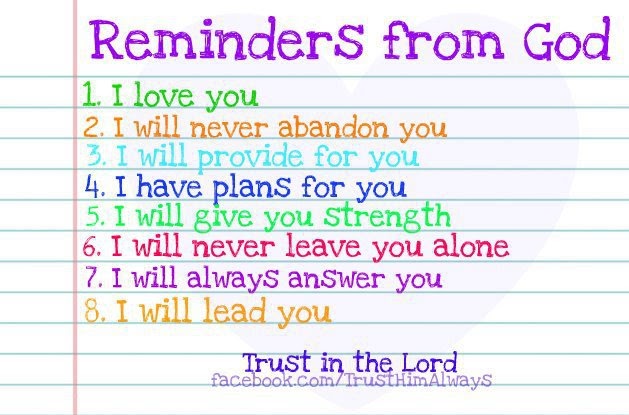 Reminders from God
1. I love you
2. I will never abandon you
3. I will provide for you
4. I have plans for you
5. I will give you strength
6. I will never leave you alone
7. I will always answer you
8. I will lead you
Trust in the Lord
facebook.com/TrustHimAlways